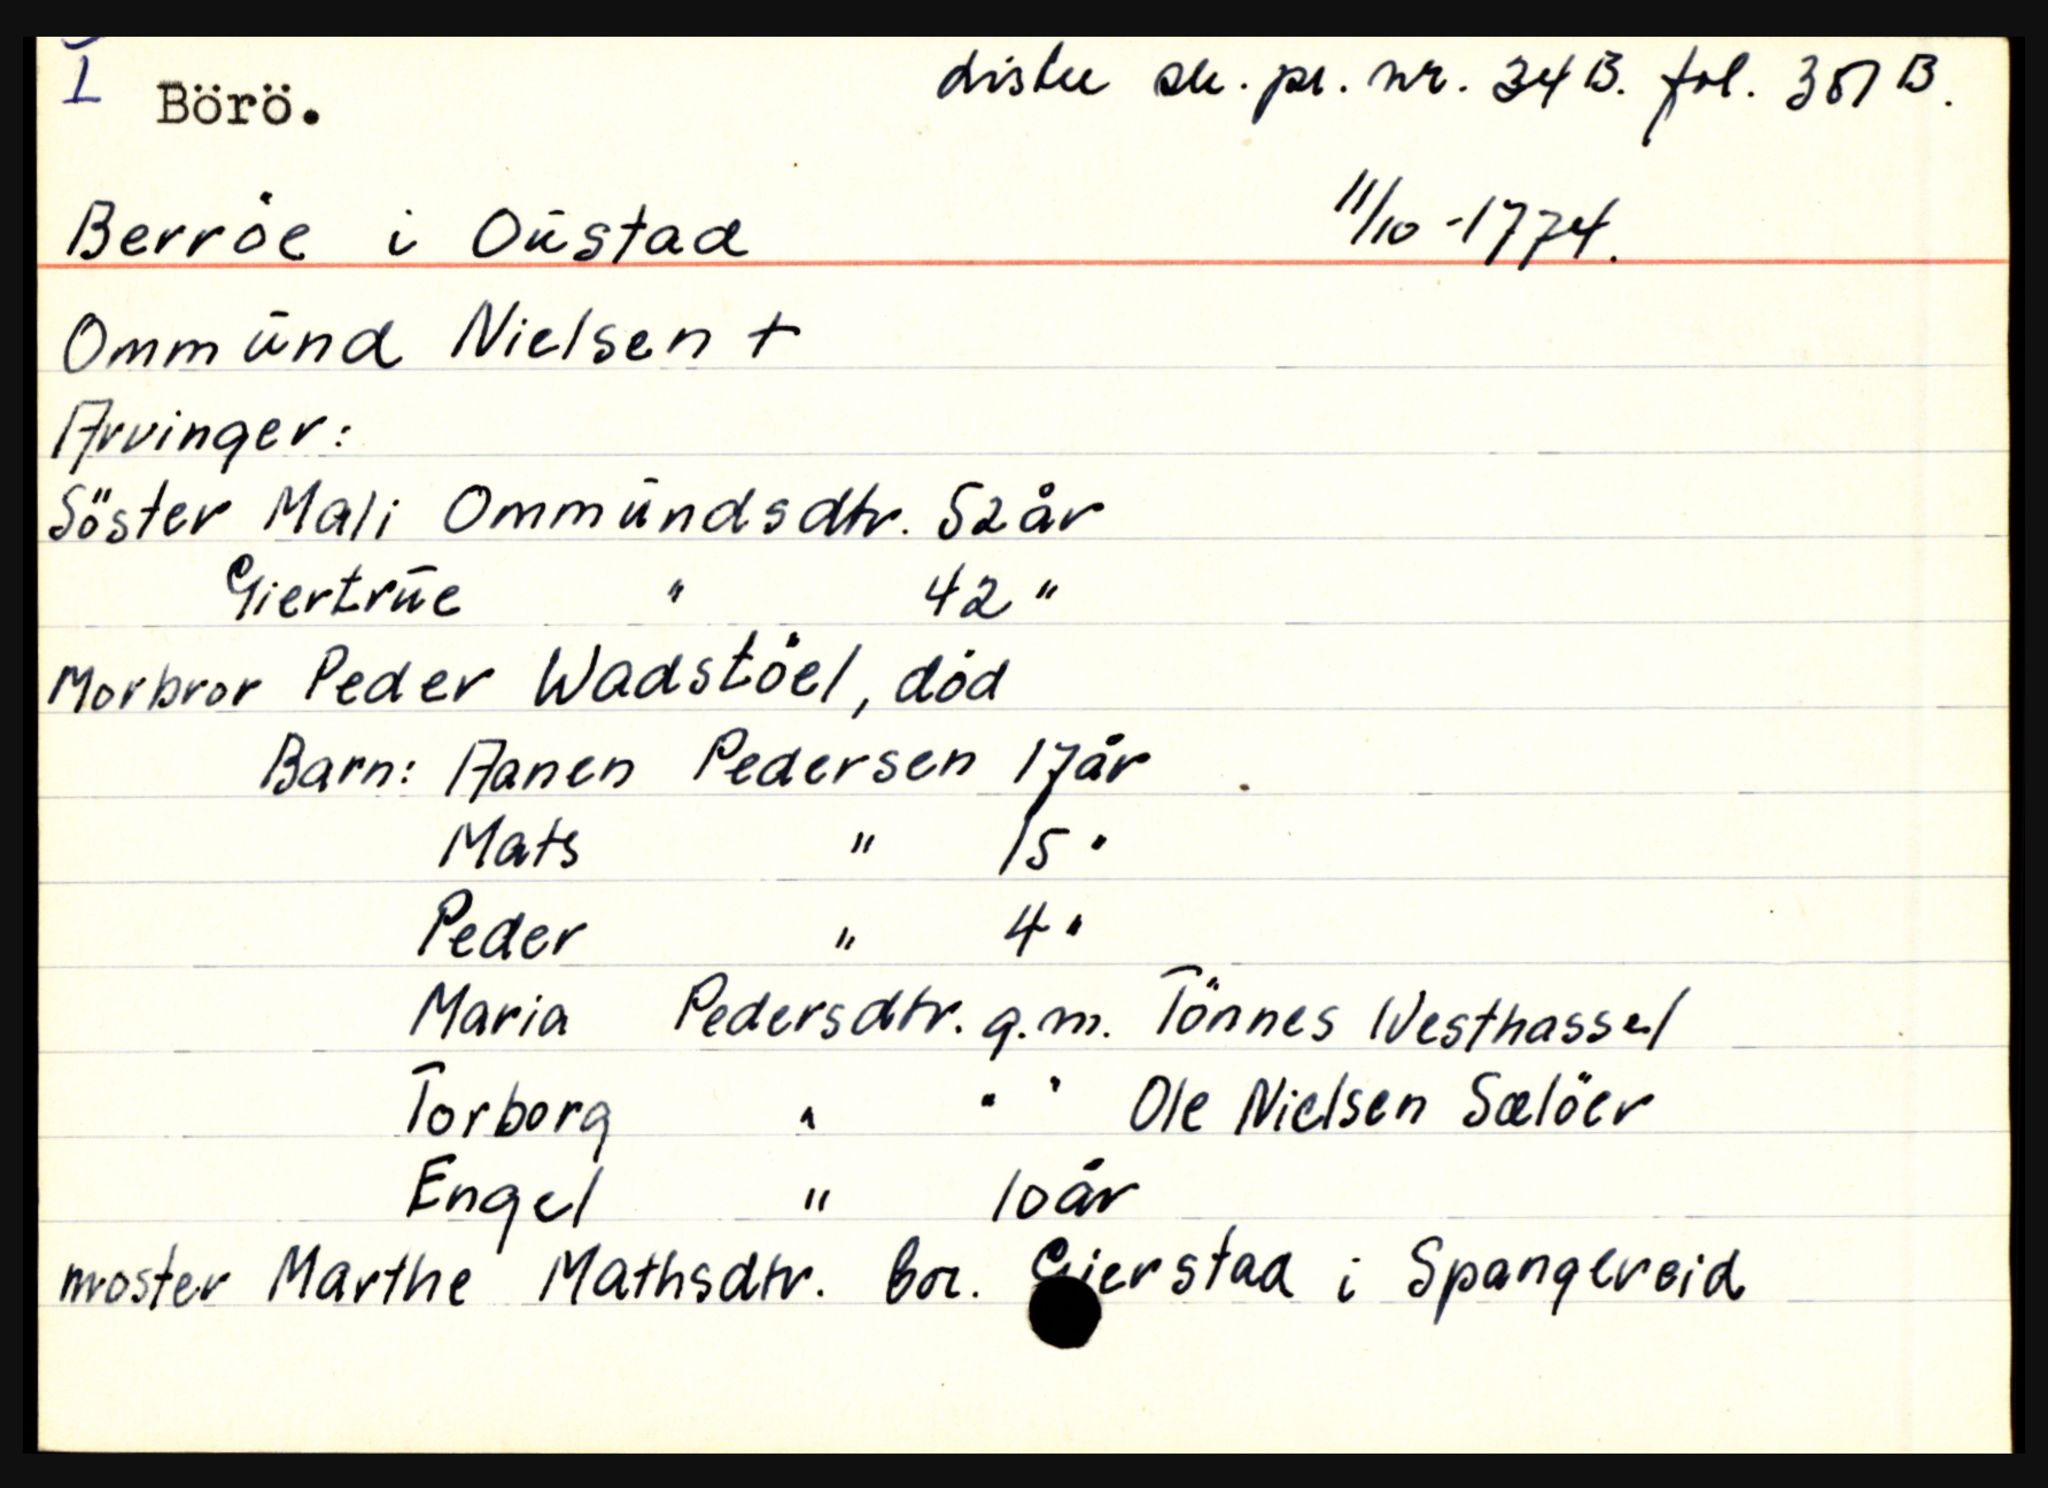 I Börö. Lister sk. pr. nr. 34 B. fol. 381 B.
Berröe i Oustad 11/10 - 1774.
Ommund Nielsen +
Arvinger:
Söster Mali Ommundsdtr. 52 år
Giertrue " 42 "
Morbror Peder Wadstöel, död
Barn: Aanen Pedersen 17 år
Mats " 15 "
Peder " 4 "
Maria Pedersdtr. g.m. Tönnes Westhassel
Torborg " " " Ole Nielsen Sælöer
Engel " 10 år
moster Marthe Mathsdtr. bor. Gierstad i Spangereid